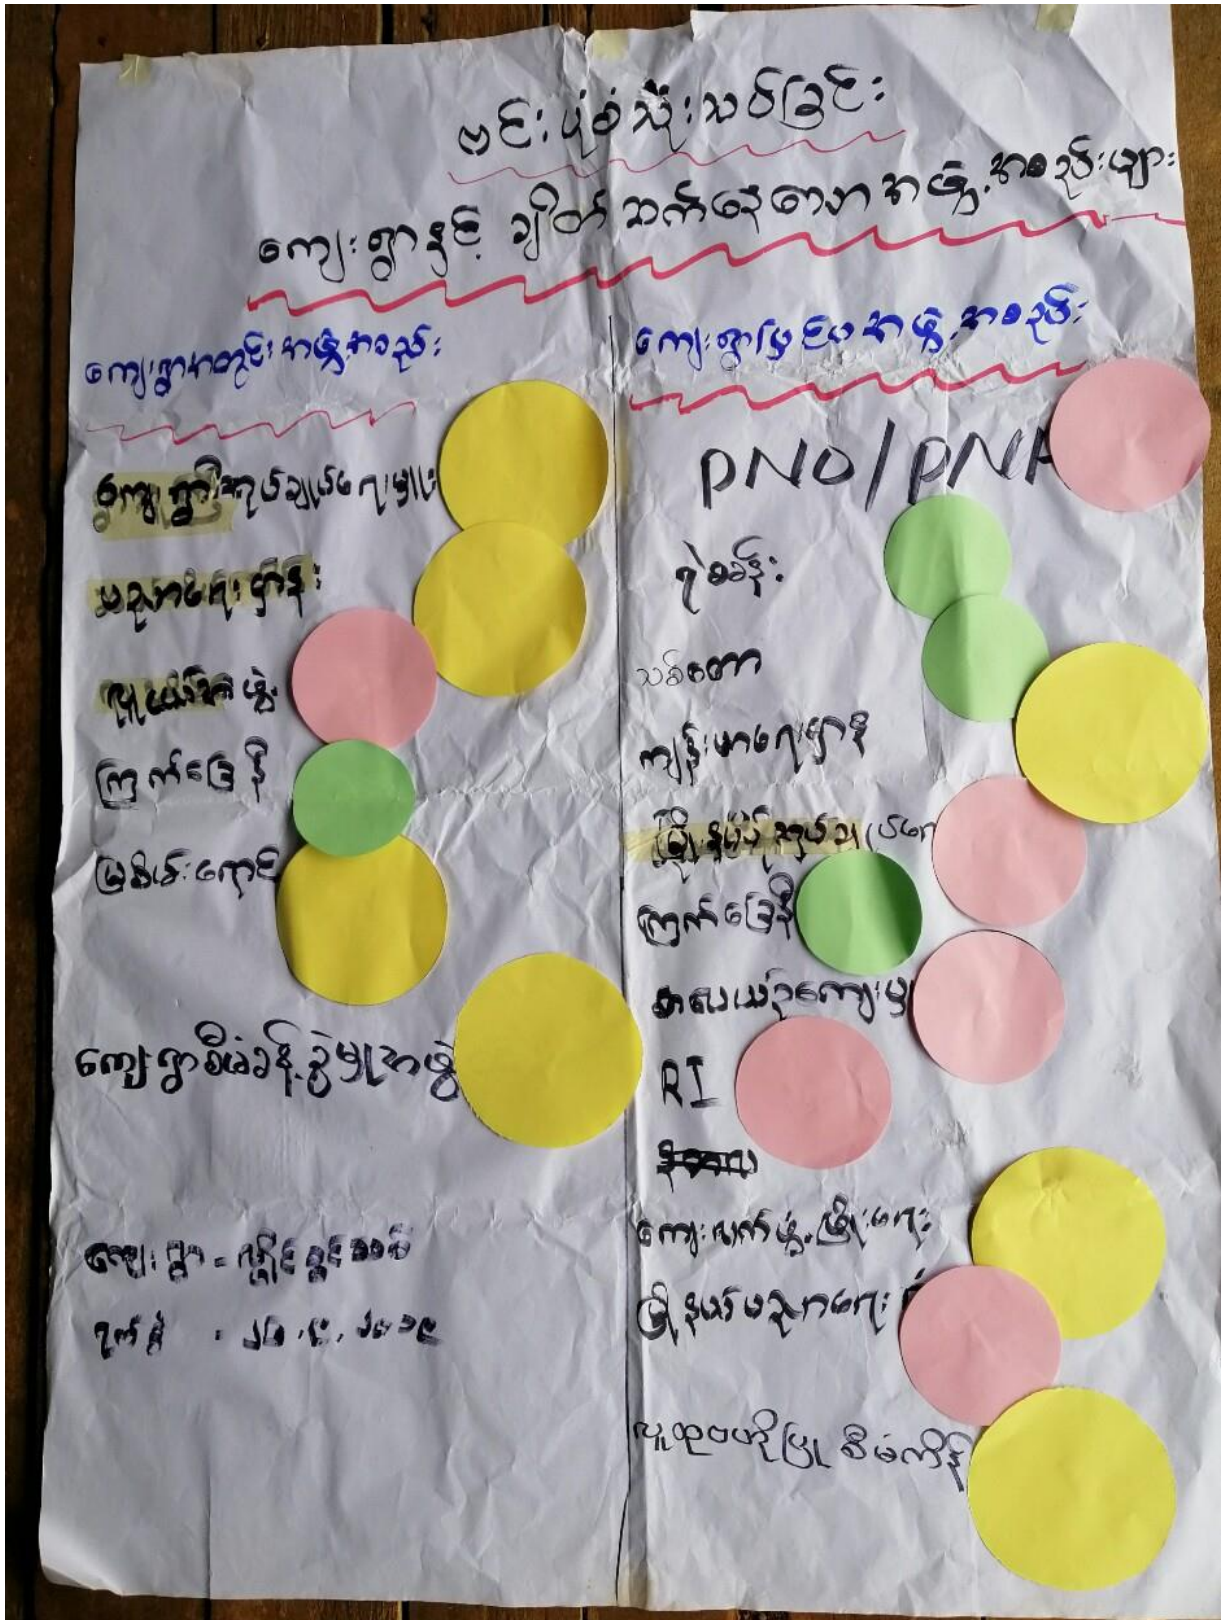 ဗင်းပုံစံသုံးသပ်ခြင်း
ကျေးရွာနှင့် ချိတ်ဆက်နေသောအဖွဲ့အစည်းများ
ကျေးရွာအတွင်းအဖွဲ့အစည်း
ကျေးရွာအုပ်ချုပ်ရေးမှူး
ပညာရေးဌာန
အဖွဲ့
ကြက်ခြေနီ
မြစိမ်းရောင်
ကျေးရွာစီမံခန့်ခွဲမှုအဖွဲ့
ကျေးရွာ =
ရက်စွဲ
ကျေးရွာပြင်ပအဖွဲ့အစည်း
PNO/PNA
ရဲစခန်း
သစ်တော
ကျန်းမာရေးဌာန
မြို့နယ်အုပ်ချုပ်ရေ
ကြက်ခြေနီ
အသေးစားချေး
RI
ကျေးလက်ဖွံ့ဖြိုးရေး
မြို့နယ်ပညာရေး
လူထုဗဟိုပြုစီမံကိန်း